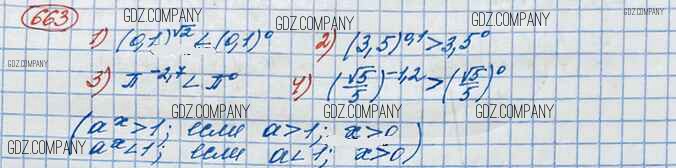 663 GDZ.COMPANY GDZ.COMPANY GDZ.COMPANY
1) (0,1)^√2 < (0,1)^0 2) (3,5)^0,1 > 3,5^0
GDZ.COMPANY GDZ.COMPANY GDZ.COMPANY
3) π^-2,7 < π^0 4) (√5/5)^-1,2 > (√5/5)^0
GDZ.COMPANY GDZ.COMPANY GDZ.COMPANY
(a^x > 1; если a > 1; x > 0
a^x < 1; если a < 1; x > 0)
GDZ.COMPANY GDZ.COMPANY GDZ.COMPANY